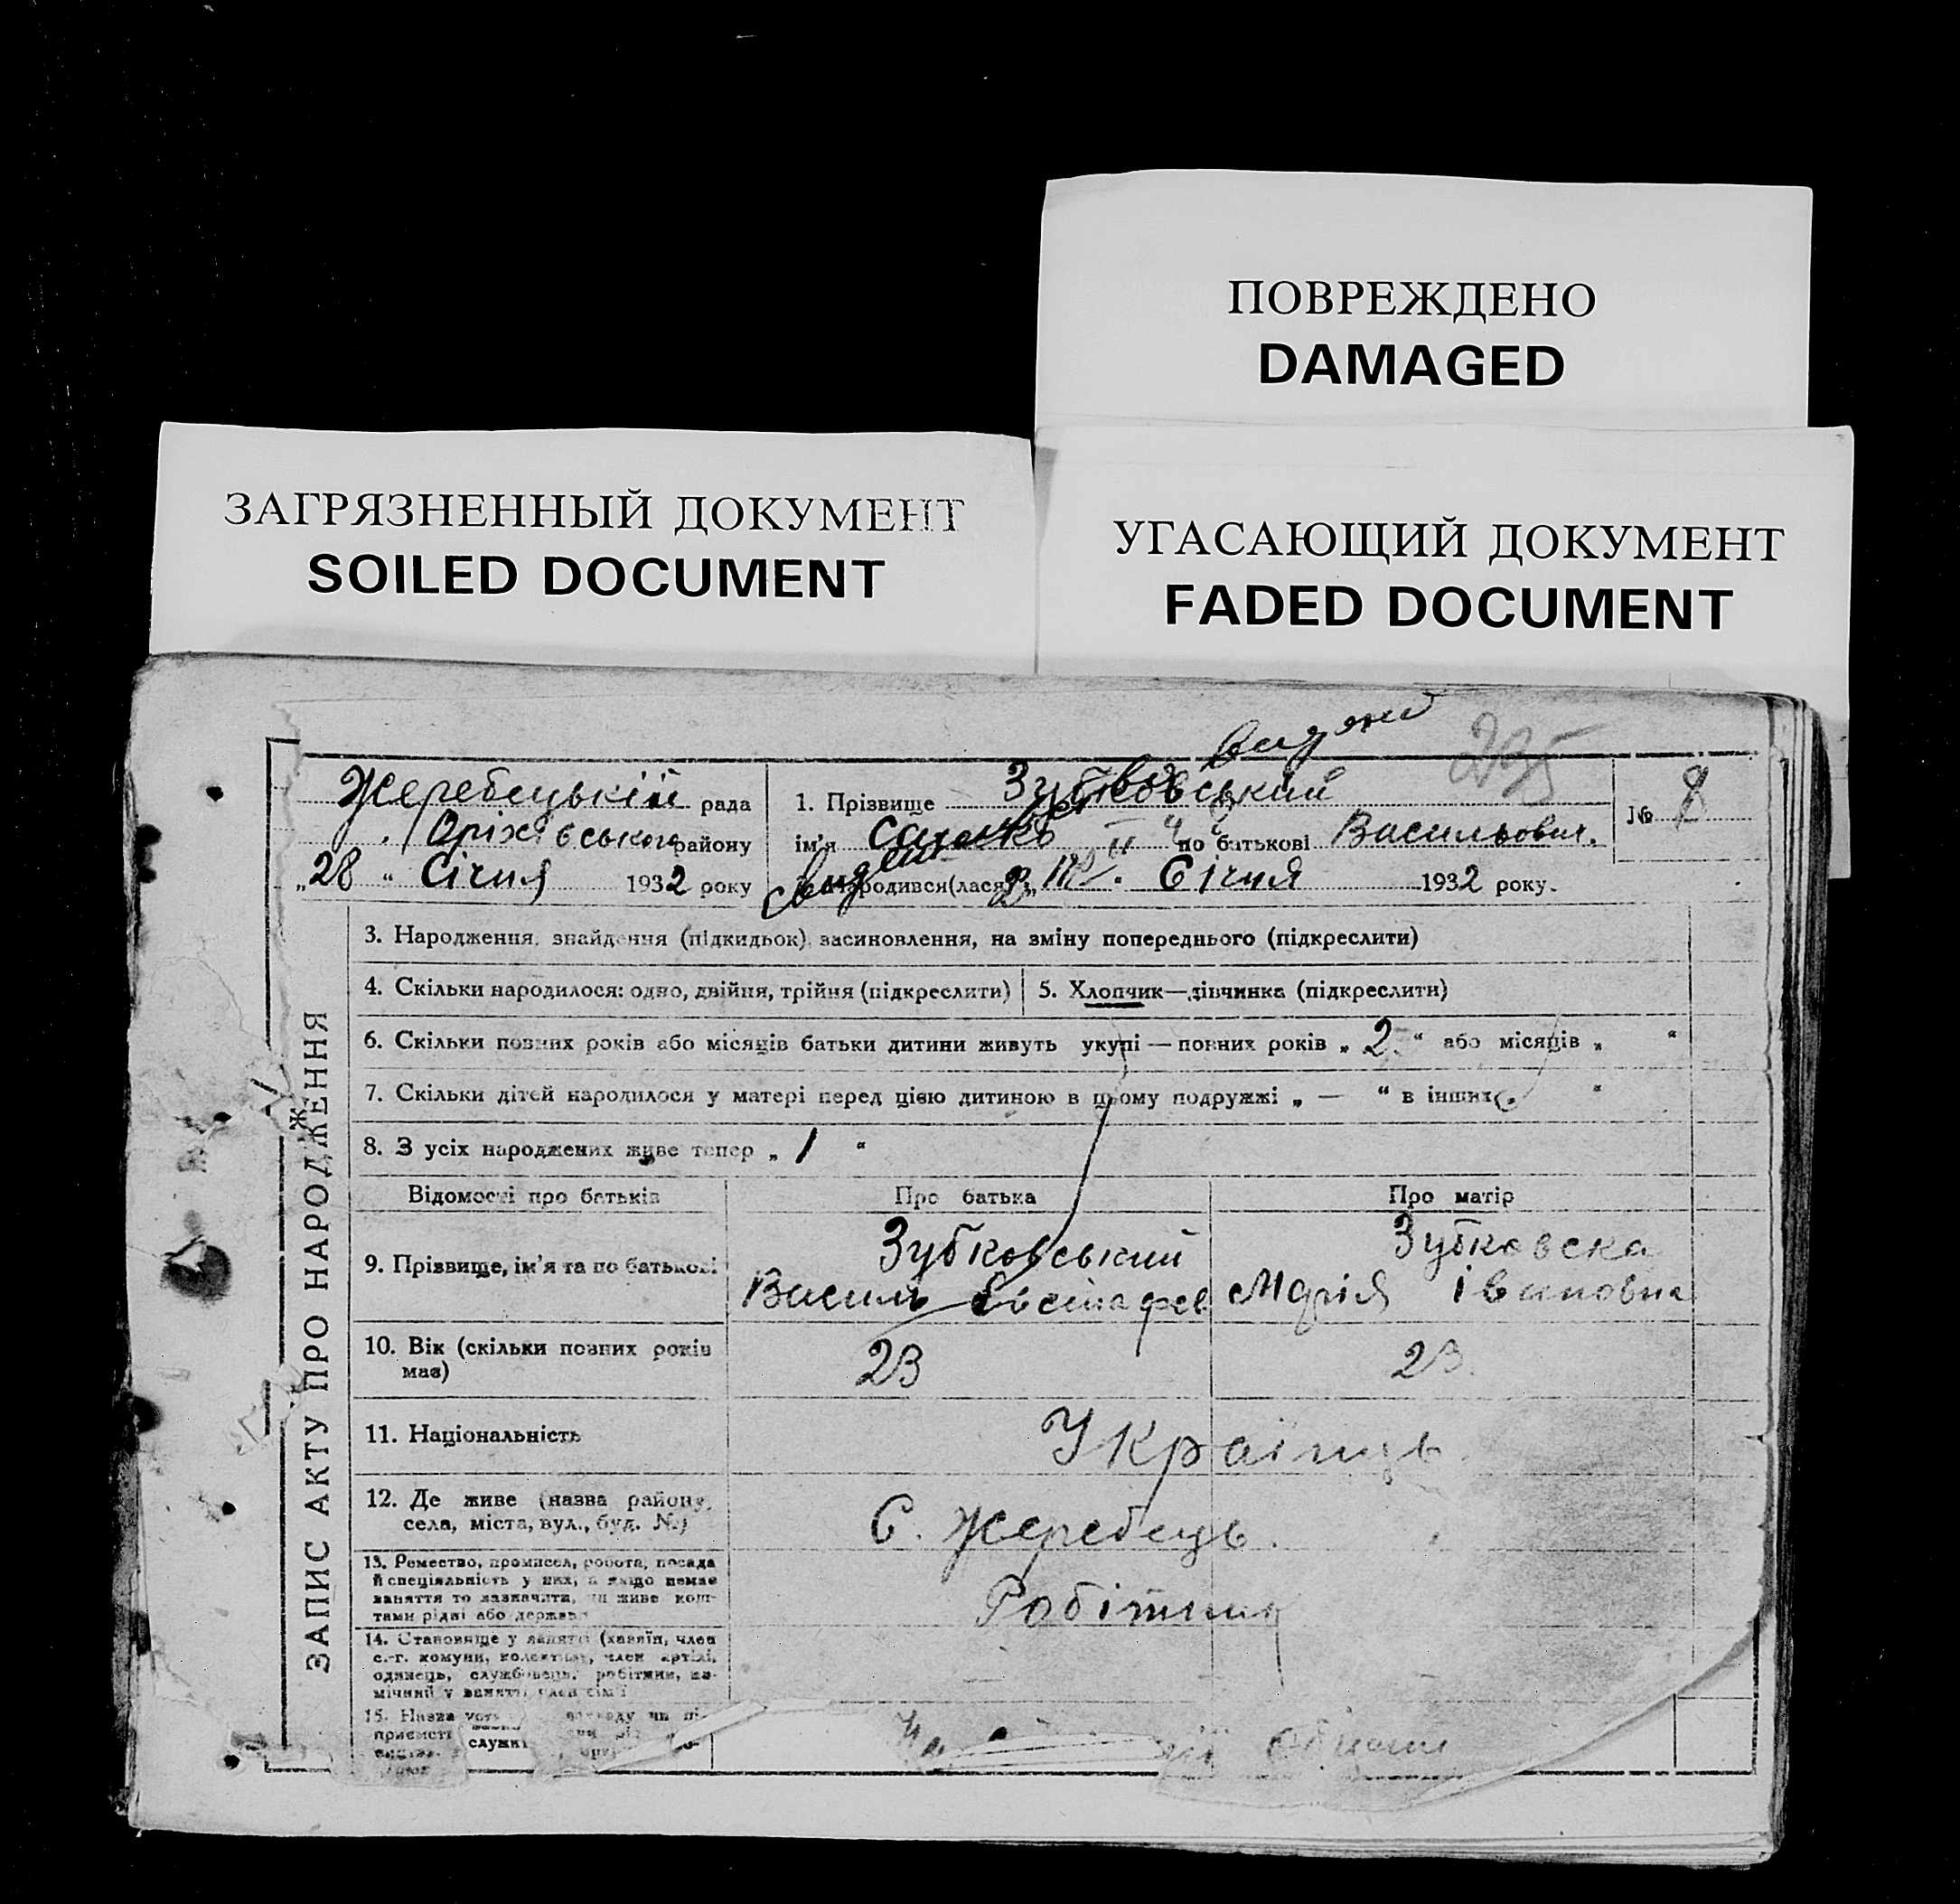 ПОВРЕЖДЕНО
DAMAGED
ЗАГРЯЗНЕННЫЙ ДОКУМЕНТ
SOILED DOCUMENT
УГАСАЮЩИЙ ДОКУМЕНТ
FADED DOCUMENT
295
Жеребецькій рада
Оріхівського району
„28“ Січня 1932 року
1. Прізвище Зубковський
ім'я по батькові Васильович.
народився(лася) Січня 1932 року.
№ 8
ЗАПИС АКТУ ПРО НАРОДЖЕННЯ
3. Народження, знайдення (підкидьок) засиновлення, на зміну попереднього (підкреслити)
4. Скільки народилося: одно, двійня, трійня (підкреслити)
5. Хлопчик—дівчинка (підкреслити)
6. Скільки повних років або місяців батьки дитини живуть укупі — повних років „2.“ або місяців „ “
7. Скільки дітей народилося у матері перед цією дитиною в цьому подружжі „ — “ в інших “
8. З усіх народжених живе тепер „ 1 “
Відомості про батьків
Про батька
Про матір
9. Прізвище, ім'я та по батькові
Зубковський
Василь
Зубковска
Марія Івановна
10. Вік (скільки повних років
має)
23
23
11. Національність
Українць
12. Де живе (назва району,
села, міста, вул., буд. №)
С. Жеребець.
13. Ремество, промисел, робота, посада
й спеціяльність у них, а якщо немає
заняття то зазначити, чи живе кош-
тами рідні або держави
Робітник
14. Становище у занятті (хазяїн, член
с.-г. комуни, колективу, член артілі,
одинець, службовець, робітник, по-
мічний у занятті член сім'ї
15. Назва